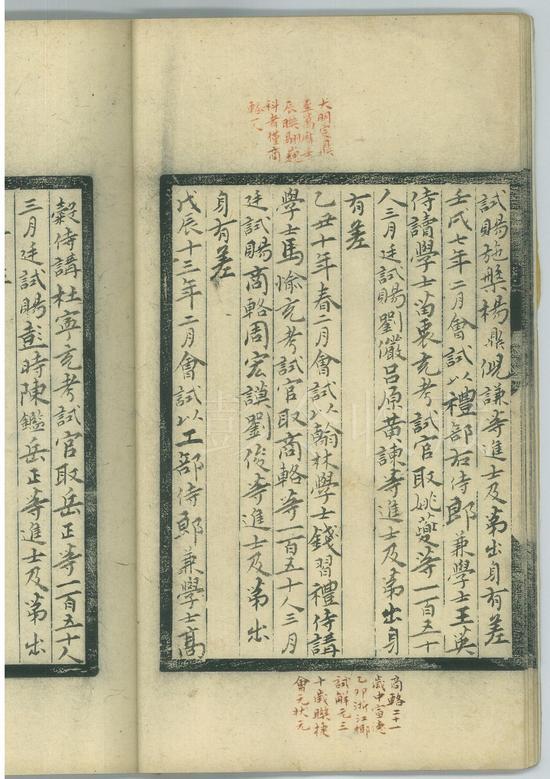 大明定鼎
至萬曆壬
辰聯翩魏
科者僅商
輅一人
試賜施槃楊鼎倪謙等進士及第出身有差
壬戌七年二月會試以禮部右侍郎兼學士王英
侍讀學士苗衷充考試官取姚夔等一百五十
人三月廷試賜劉儼呂原黃諫等進士及第出身
有差
乙丑十年春二月會試以翰林學士錢習禮侍講
學士馬愉充考試官取商輅等一百五十人三月
廷試賜商輅周宏謨劉俊等進士及第出
身有差
戊辰十三年二月會試以工部侍郎兼學士高
穀侍講杜寧充考試官取岳正等一百五十人
三月廷試賜彭時陳鑑岳正等進士及第出
商輅二十一
歲中宣德
乙卯浙江鄉
試解元三
十歲聯捷
會元狀元